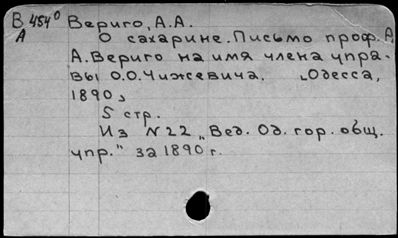 В 454⁰ Вериго, А.А.
А О сахарине. Письмо проф. А.
А. Вериго на имя члена упра-
вы О.О. Чижевича. Одесса,
1890,
5 стр.
Из №22 „Вед. Од. гор. общ.
упр." за 1890 г.